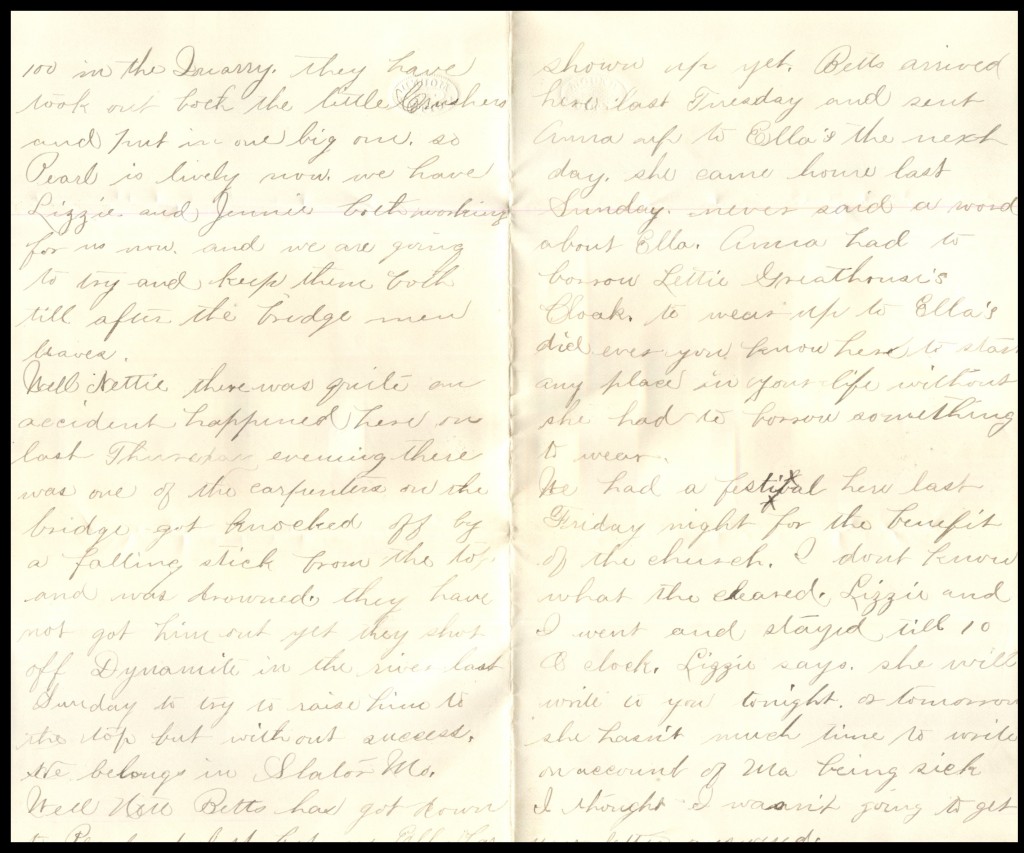 100 in the Quarry. they have
took out both the little Crushers
and put in one big one. so
Pearl is lively now. we have
Lizzie and Jennie both working
for us now. and we are going
to try and keep them both
till after the bridge men
leaves.
Well Nettie there was quite an
accident happened here on
last Thursday evening there
was one of the carpenters on the
bridge got knocked off by
a falling stick from the top
and was drowned. they have
not got him out yet they shot
off Dynamite in the river last
Sunday to try to raise him to
the top but without success.
He belongs in Slator Mo.
Well Nett Betts has got down
to
shown up yet. Betts arrived
here last Tuesday and sent
Anna up to Ella's the next
day. she came home last
Sunday. never said a word
about Ella. Anna had to
borrow Lettie Greathouse's
Cloak. to wear up to Ella's
did ever you know her to start
any place in your life without
she had to borrow something
to wear.
We had a festival here last
Friday night for the benefit
of the church. I dont know
what the cleared. Lizzie and
I went and stayed till 10
O clock. Lizzie says. she will
write to you tonight. or tomorrow
she hasn't much time to write
on account of Ma being sick
I thought I wasn't going to get